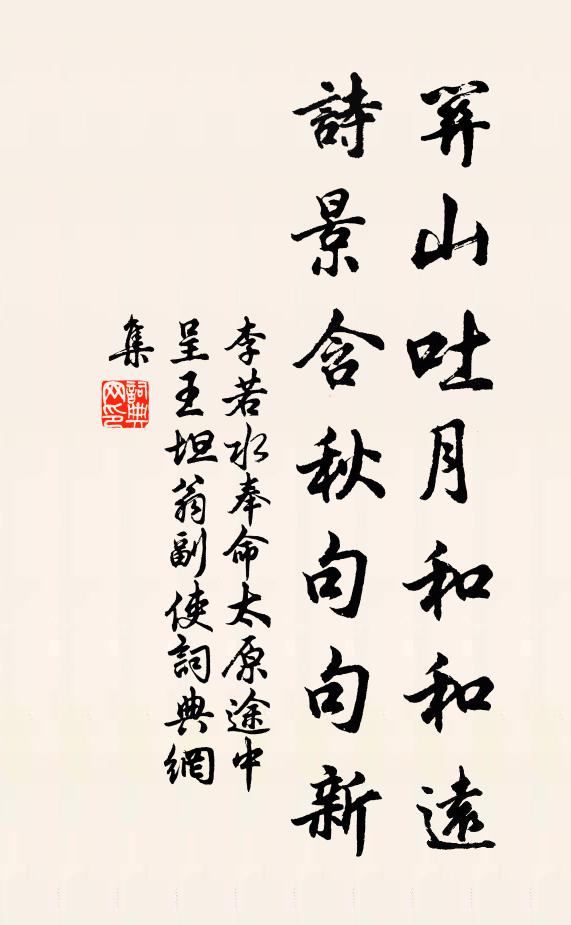 關山吐月和和遠
詩景含秋句句新
李若水奉命太原途中
呈王坦翁副使詞典網
集
詞典
网印